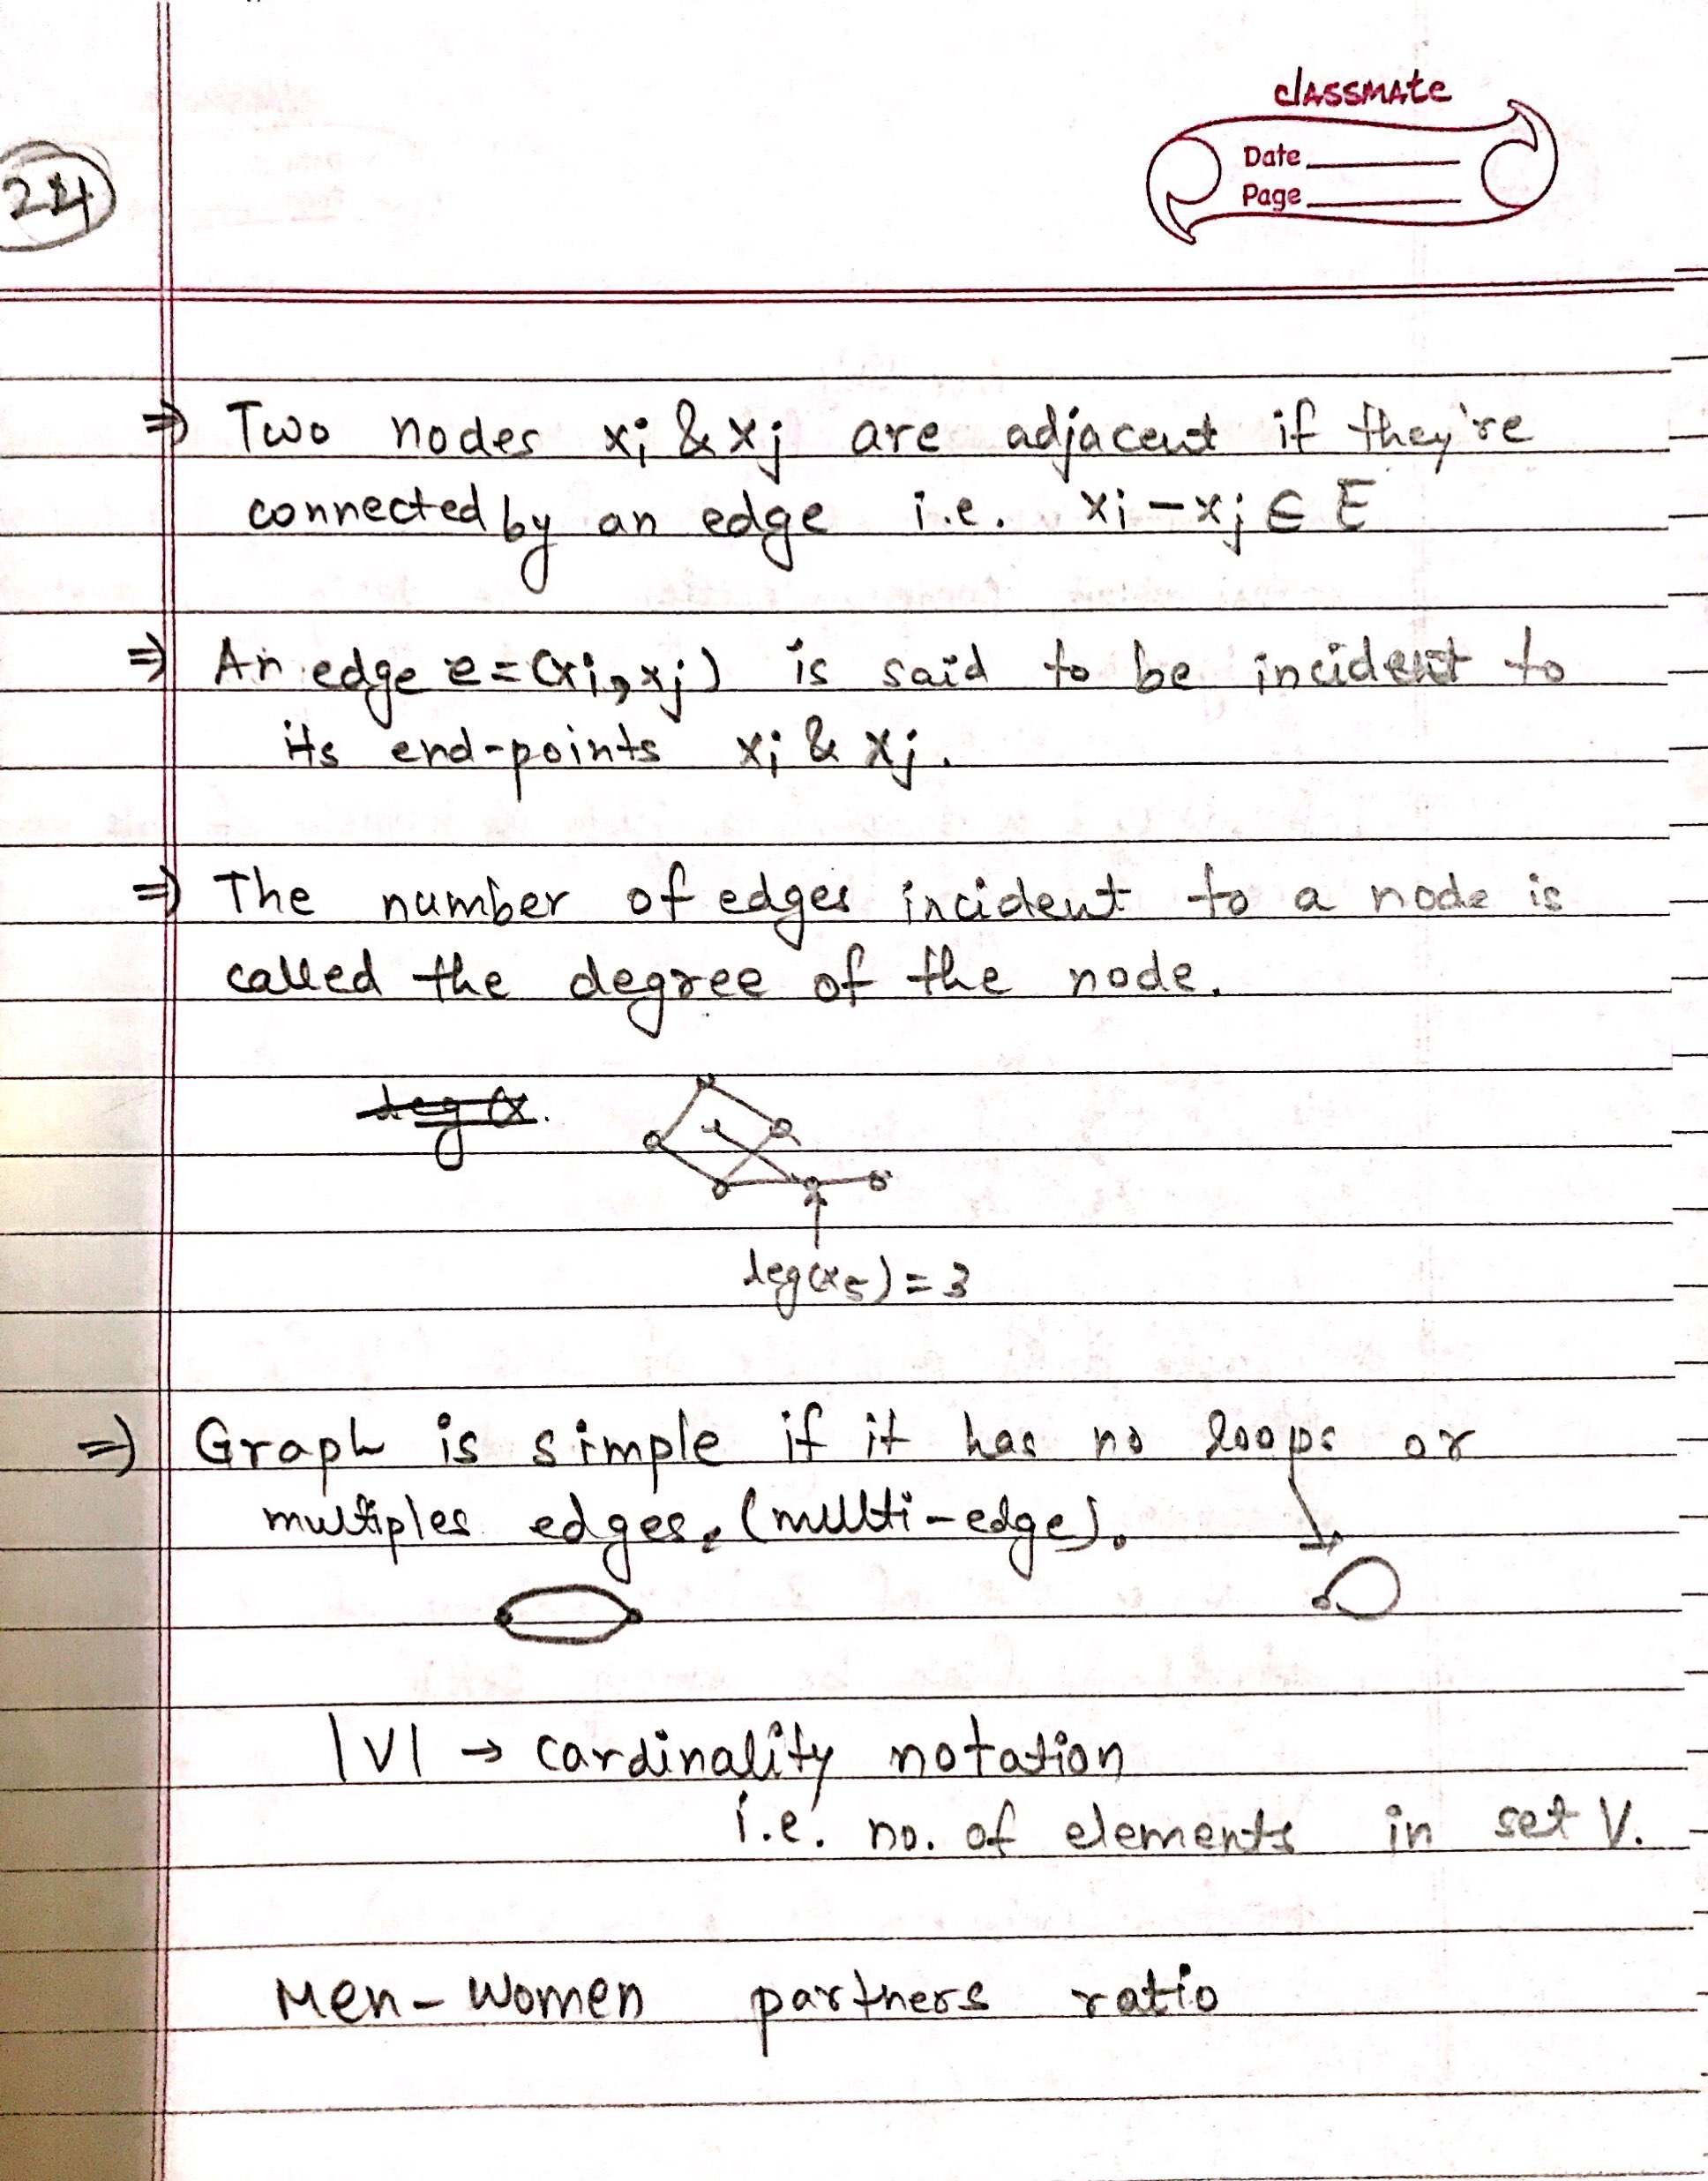 classmate
Date
Page
24
⇒ Two nodes xi & xj are adjacent if they're
connected by an edge i.e. xi - xj ∈ E
⇒ An edge e = (xi, xj) is said to be incident to
its end-points xi & xj.
⇒ The number of edges incident to a node is
called the degree of the node.
deg(x.
deg(x5) = 3
⇒ Graph is simple if it has no loops or
multiples edges. (multi-edge).
|V| → cardinality notation
i.e. no. of elements in set V.
Men-Women partners ratio